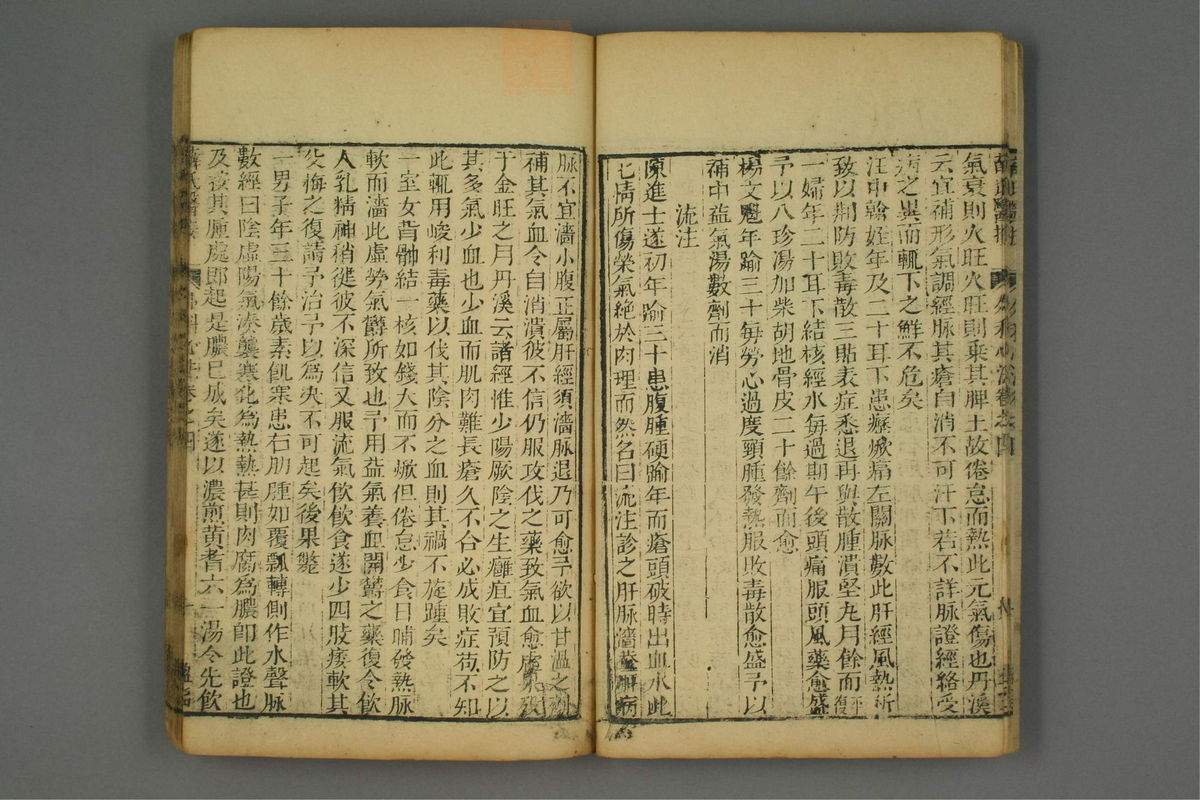 氣衰則火旺火旺則乗其脾土故倦怠而熱此元氣傷也丹溪
云宜補形氣調經脉其瘡自消不可汗下若不詳脉證經絡受
病之異而輒下之鮮不危矣
汪中翰姪年及二十耳下患瘰㿃痛左關脉數此肝經風熱所
致以荆防敗毒散三貼表症悉退再與散腫潰堅丸月餘而平復
一婦年二十耳下結核經水每過期午後頭痛服頭風藥愈盛
予以八珍湯加柴胡地骨皮二十餘劑而愈
楊文魁年踰三十每勞心過度頸腫發熱服敗毒散愈盛予以
補中益氣湯數劑而消
流注
陳進士遂初年踰三十患腹腫硬踰年而瘡頭破時出血水此
七情所傷榮氣絶於肉理而然名曰流注診之肝脉濇病
脉不宜濇小腹正屬肝經須濇脉退乃可愈予欲以甘溫之劑
補其氣血令自消潰彼不信仍服攻伐之藥致氣血愈虚果歿
于金旺之月丹溪云諸經惟少陽厥陰之生癰疽宜預防之以
其多氣少血也少血而肌肉難長瘡久不合必成敗症苟不知
此輒用峻利毒藥以伐其陰分之血則其禍不旋踵矣
一室女背髀結一核如錢大而不㿃但倦怠少食日晡發熱脉
軟而濇此虛勞氣欝所致也予用益氣養血開欝之藥復令飲
人乳精神稍徤彼不深信又服流氣飲飲食遂少四肢痿軟其
父悔之復請予治予以為決不可起矣後果斃
一男子年三十餘歲素飢寒患右肋腫如覆瓢轉則作水聲脉
數經曰陰虛陽氣湊襲寒化為熱熱甚則肉腐為膿即此證也
及按其腫處即起是膿已成矣遂以濃煎黄耆六一湯令先飲